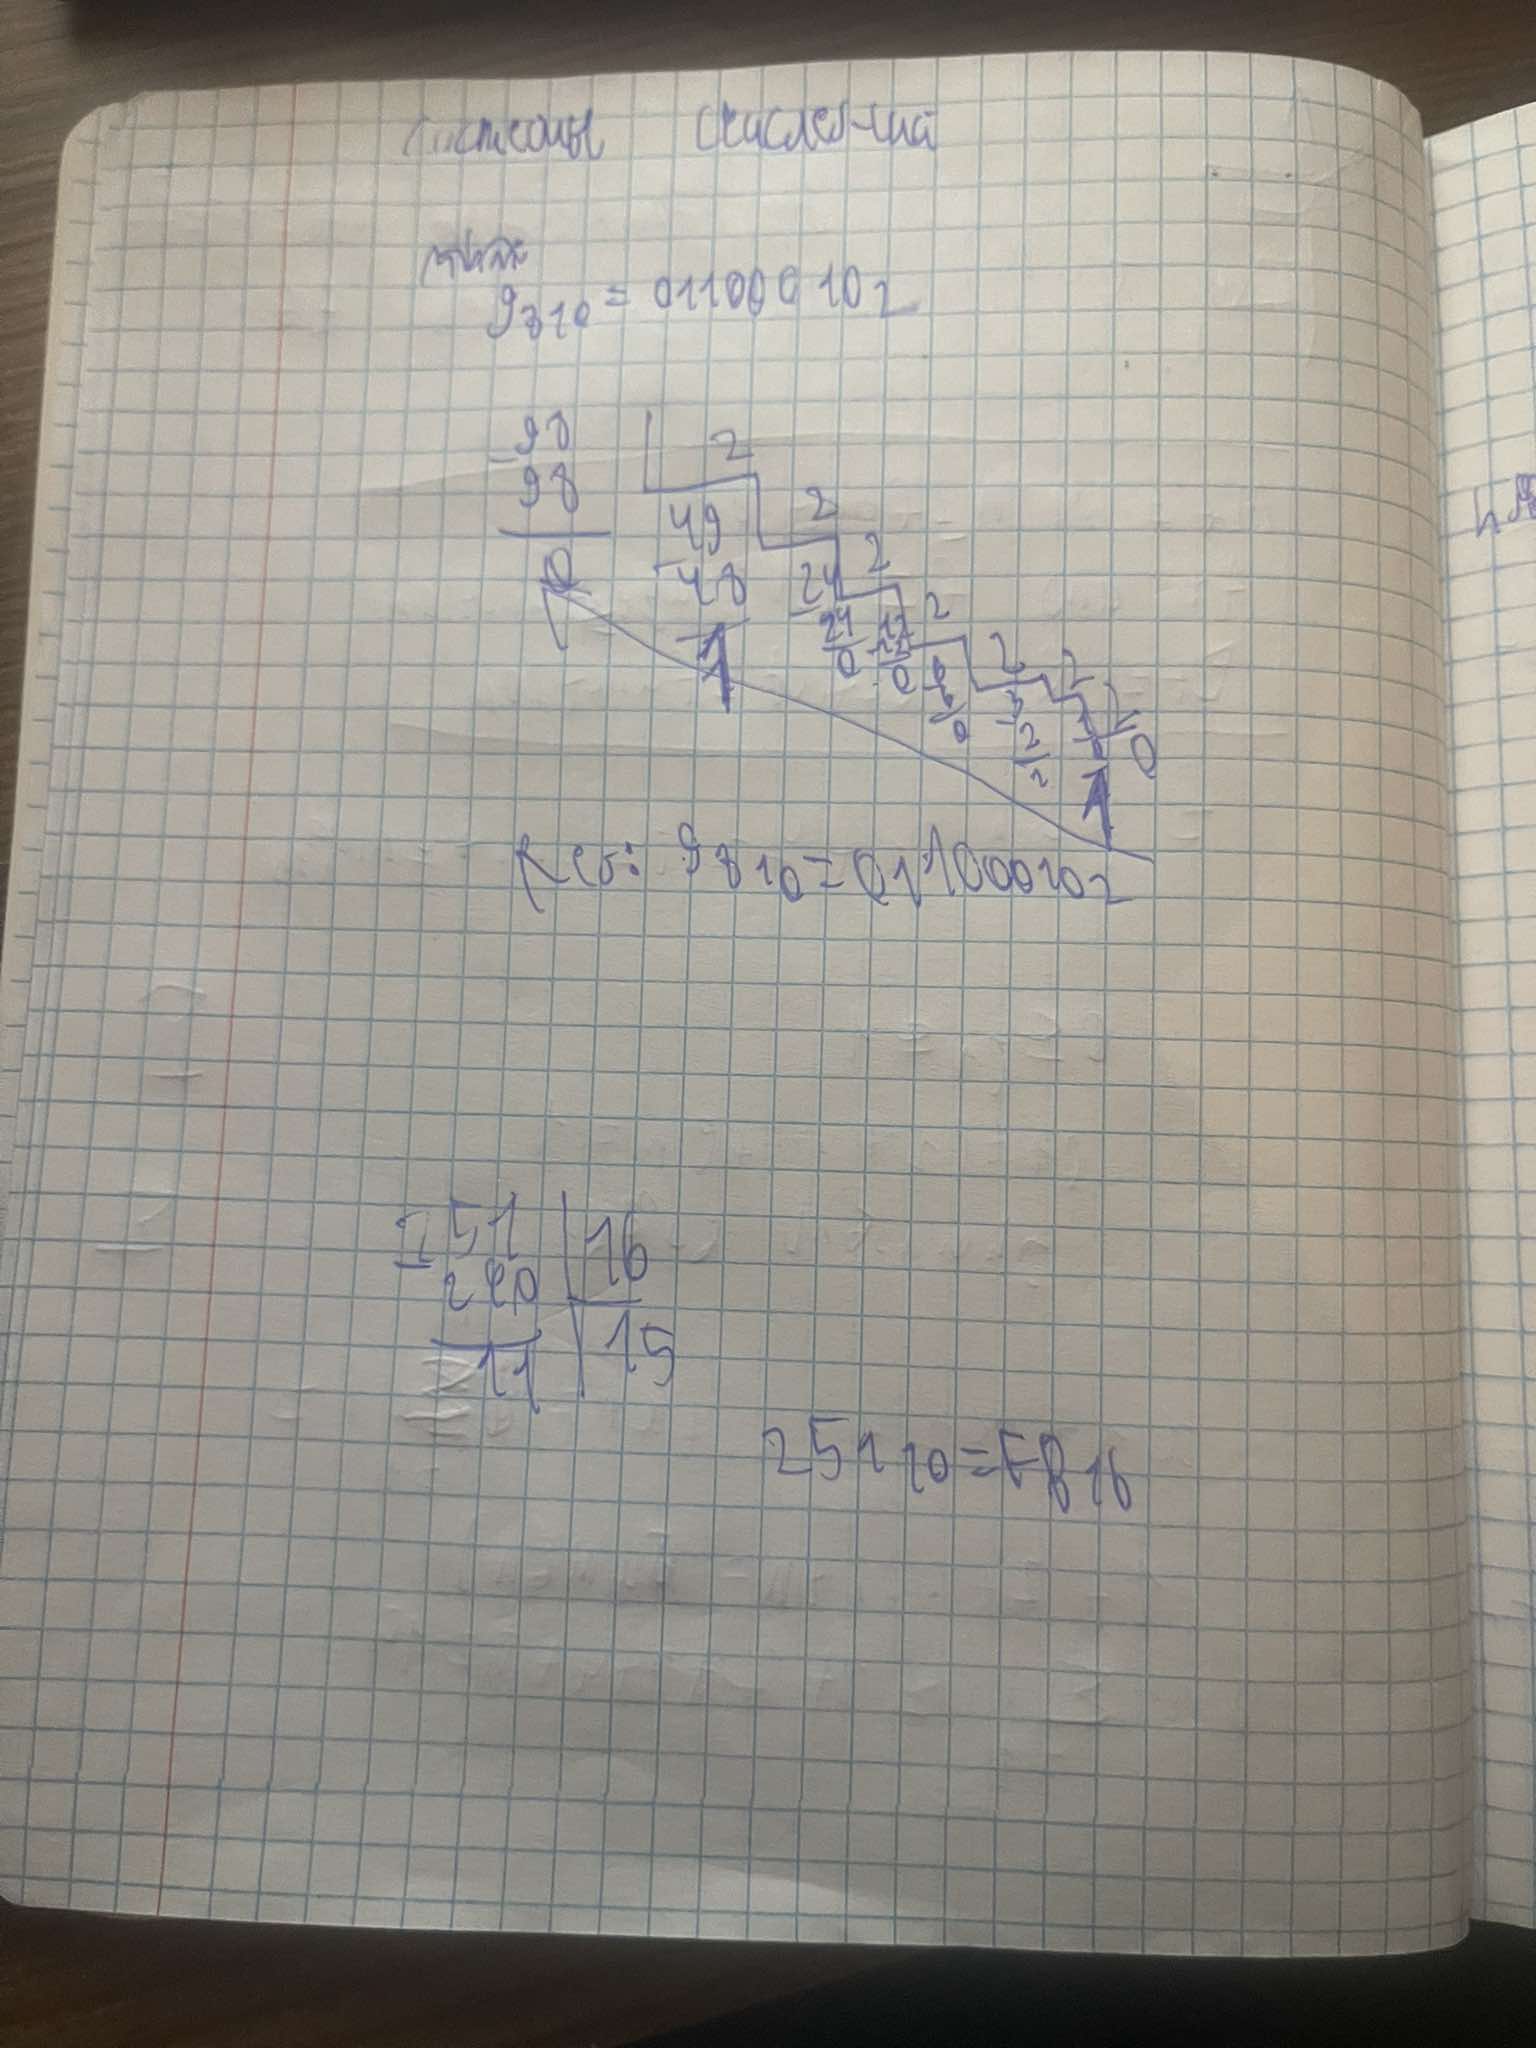 Системы счислений
98₁₀ = 01100010₂
98 2
98 49 2
0 48 24 2
1 24 12 2
0 12 6 2
0 6 3 2
0 2 1 2
0
98₁₀ = 01100010₂
251 16
240 15
11
251₁₀ = FB₁₆